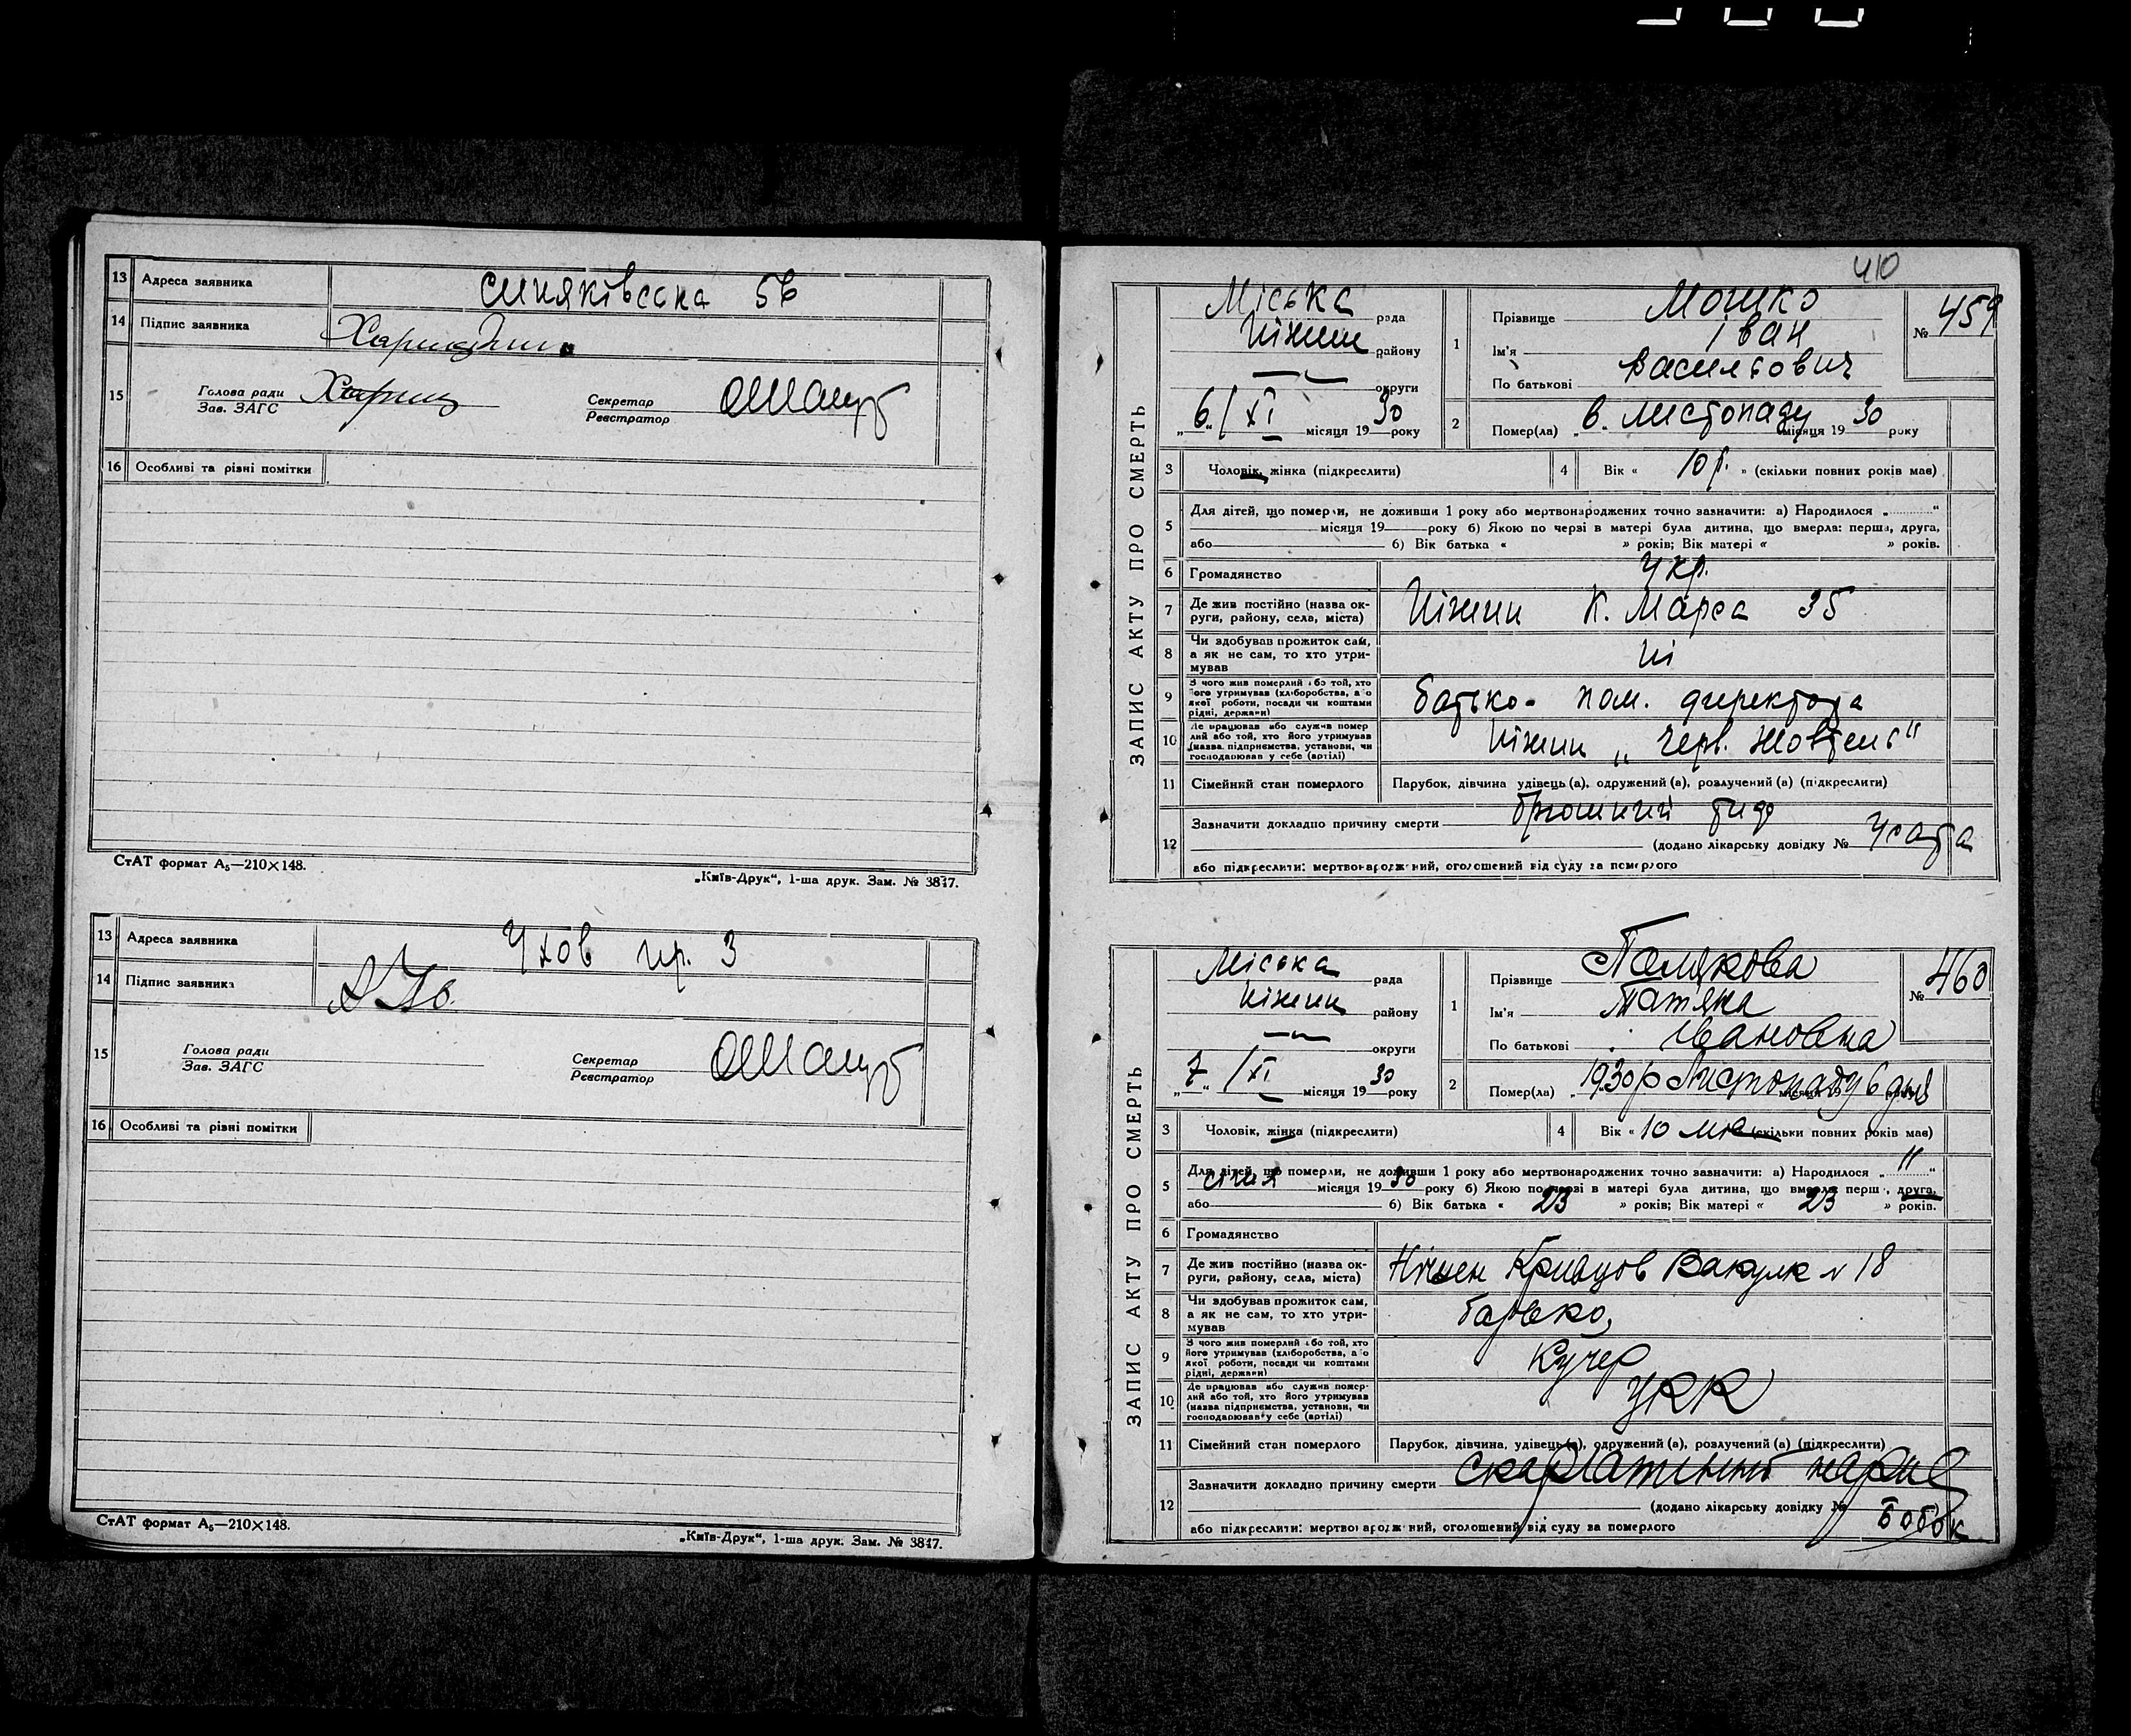 13 Адреса заявника синяківська 56
14 Підпис заявника
15 Голова ради
Зав. ЗАГС
Секретар
Реєстратор
16 Особливі та різні помітки
СтАТ формат А₅—210×148.
„Київ-Друк“, 1-ша друк. Зам. № 3847.
13 Адреса заявника пр. 3
14 Підпис заявника
15 Голова ради
Зав. ЗАГС
Секретар
Реєстратор
16 Особливі та різні помітки
СтАТ формат А₅—210×148.
„Київ-Друк“, 1-ша друк. Зам. № 3847.
410
ЗАПИС АКТУ ПРО СМЕРТЬ
Міська рада
Ніжин району
округи
„6“ / XI місяця 1930 року
1 Прізвище Мошко
Ім'я Іван
По батькові Васильович
№ 459
2 Помер(ла) „6. листопаду місяця 1930 року
3 Чоловік, жінка (підкреслити)
4 Вік « 10 р. » (скільки повних років мав)
5 Для дітей, що померли, не доживши 1 року або мертвонароджених точно зазначити: а) Народилося „ “
місяця 19 року б) Якою по черзі в матері була дитина, що вмерла: перша, друга,
або б) Вік батька « » років; Вік матері « » років.
6 Громадянство Укр.
7 Де жив постійно (назва ок-
руги, району, села, міста) Ніжин К. Маркса 35
8 Чи здобував прожиток сам,
а як не сам, то хто утри-
мував ні
9 З чого жив померлий або той, хто
його утримував (хліборобства, або
якої роботи, посади чи коштами
рідні, держави) батько - пом. директора
10 Де працював або служив помер
лий або той, хто його утримував
(назва підприємства, установи, чи
господарював у себе (артілі) Ніжин „Черв. жовтень“
11 Сімейний стан померлого Парубок, дівчина удівець (а), одружений (а), розлучений (а) (підкреслити)
12 Зазначити докладно причину смерти брюшний тиф
(додано лікарську довідку №
або підкреслити: мертвонароджений, оголошений від суду за померлого
ЗАПИС АКТУ ПРО СМЕРТЬ
Міська рада
Ніжин району
округи
„7“ / XI місяця 1930 року
1 Прізвище Полякова
Ім'я Татяна
По батькові Івановна
№ 460
2 Помер(ла) „1930 р Листопаду 6 дня
3 Чоловік, жінка (підкреслити)
4 Вік « 10 міс (скільки повних років мав)
5 Для дітей, що померли, не доживши 1 року або мертвонароджених точно зазначити: а) Народилося „11“
січня місяця 1930 року б) Якою по черзі в матері була дитина, що вмерла перша, друга,
або б) Вік батька « 23 » років; Вік матері « 23 » років.
6 Громадянство
7 Де жив постійно (назва ок-
руги, району, села, міста) 18
8 Чи здобував прожиток сам,
а як не сам, то хто утри-
мував батько,
9 З чого жив померлий або той, хто
його утримував (хліборобства, або
якої роботи, посади чи коштами
рідні, держави) Кучер
10 Де працював або служив помер-
лий або той, хто його утримував
(назва підприємства, установи, чи
господарював у себе (артілі)
11 Сімейний стан померлого Парубок, дівчина, удівець (а), одружений (а), розлучений (а) (підкреслити)
12 Зазначити докладно причину смерти
(додано лікарську довідку № Бобок
або підкреслити: мертвонароджений, оголошений від суду за померлого